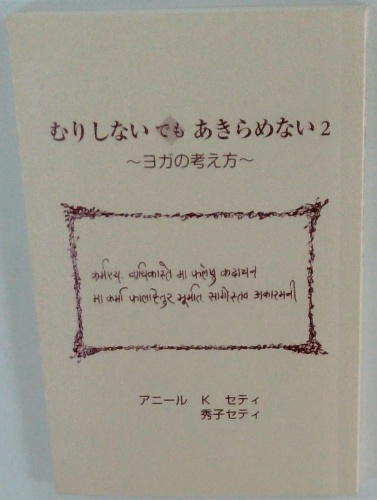 むりしない でも あきらめない 2
〜ヨガの考え方〜
कर्मस्य वाधिकास्ते मा फलेषु कदाचन
मा कर्मा फालाहेतुर भूर्माते सागोस्तव अकारमनी
アニール K セティ
秀子セティ